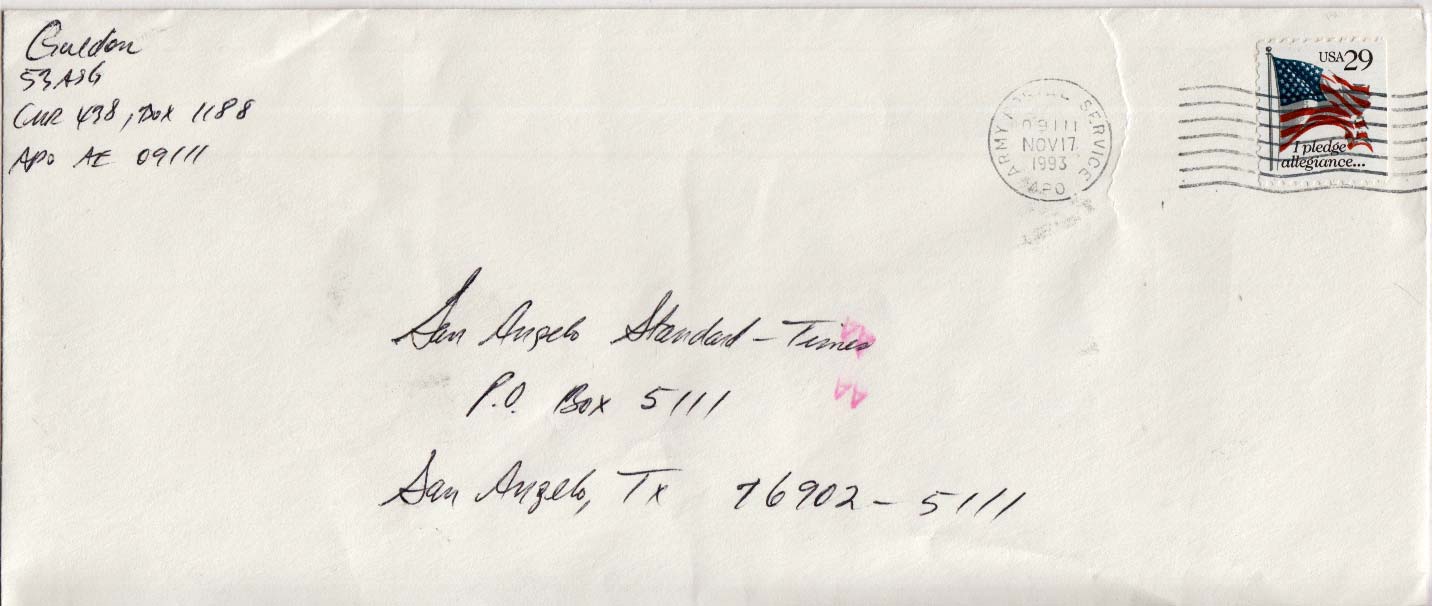 53 ASG
CMR 438, Box 1188
APO AE 09111
ARMY POSTAL SERVICE
09111
NOV 17
1993
APO
USA 29
I pledge
allegiance...
San Angelo Standard-Times
P.O. Box 5111
San Angelo, Tx 76902-5111